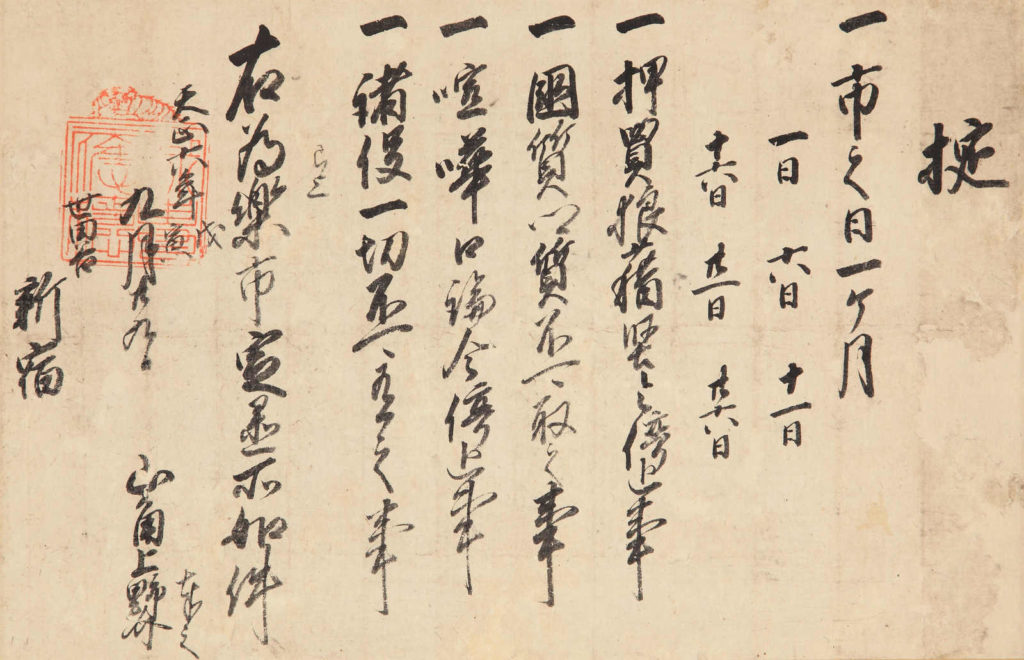 掟
一市之日一ヶ月
一日 六日 十一日
十六日 廿一日 廿六日
一押買狼藉堅令停止事
一國質郷質不可取之事
一喧嘩口論令停止事
一諸役一切不可有之事
已上
右為樂市定置所如件
天正六年戊寅
九月廿九日
山角上野介 奉之
世田谷
新宿